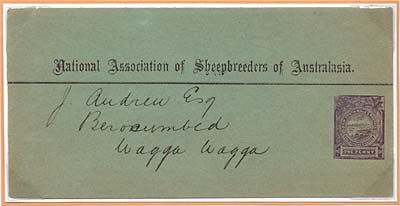 National Association of Sheepbreeders of Australasia.
J. Andrew Esq
Berocumbed
Wagga Wagga
ONE PENNY